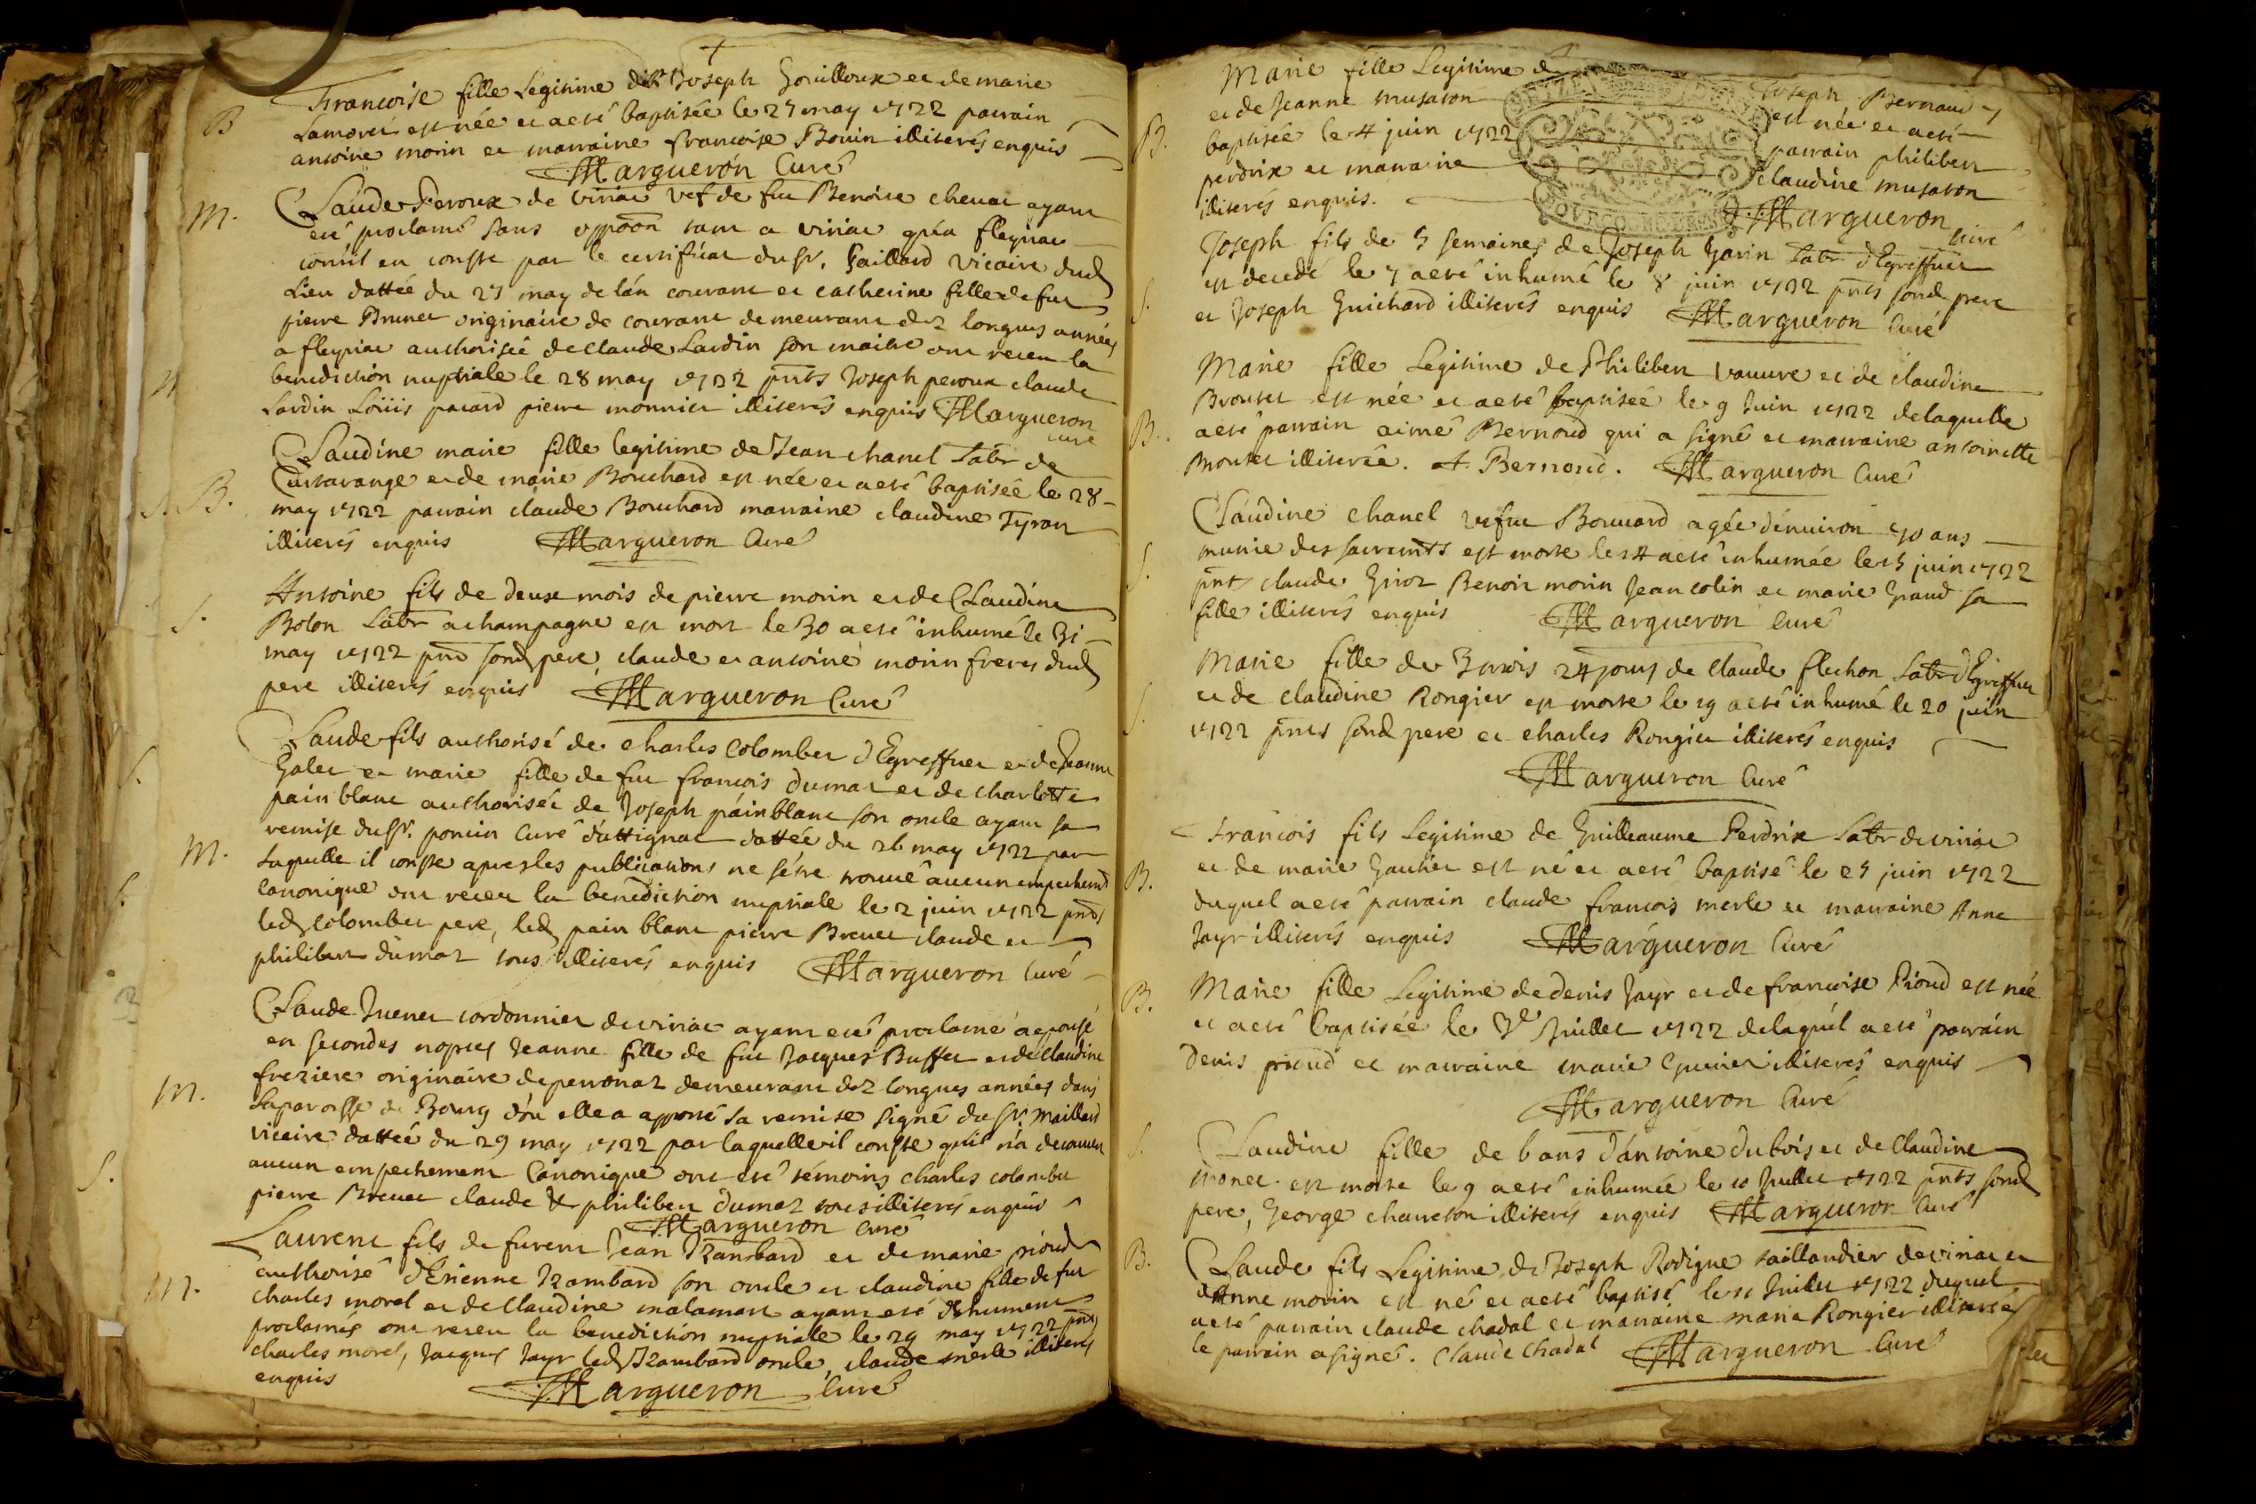 B
Francoise fille Legitime de Joseph Gouilloux et de marie
Lamoret est née et a eté baptisée le 27 may 1722 parrain
antoine morin et marraine francoise Bouin illiterés enquis
Margueron Curé
M.
Claude Peroux de viriac vef de fue Benoite chenat ayant
eté proclamé sans oppoôn tant a viriac qu'a fleyriac
come il en conste par le certificat du Sr. Gaillard vicaire dud
Lieu dattée du 27 may de l'án courant et catherine fille de fut
pierre Brunet originaire de courant demeurant dez longues années
a fleyriac authorisée de claude Lardin son maitre ont receu la
benediction nuptiale le 28 may 1722 pnts Joseph peroux claude
Lardin Loüis pacard pierre monnier illiterés enquis Margueron
curé
B.
Claudine marie fille legitime de Jean chanel Labr de
Curtarange et de marie Bouchard est née et a eté baptisée le 28
may 1722 parrain claude Bouchard marraine claudine Tyran
illiterés enquis Margueron Curé
S.
Antoine fils de deux mois de pierre morin et de Claudine
Bolon Labr a champagne est mort le 30 a eté inhumé le 31
may 1722 pnts sond pere, claude et antoine morin freres dud
pere illiterés enquis Margueron Curé
M.
Claude fils authorisé de charles Colombet d'Egreffuet et de Jeanne
Galet et marie fille de fut francois Dumat et de charlotte
pain blanc authorisée de Joseph pain blanc son oncle ayant sa
remise du Sr. poncin Curé d'attignat dattée du 26 may 1722 par
Laquelle il conste apres les publications ne s'étre trouvé aucun empechemt
Canonique ont receu la benediction nuptiale le 2 juin 1722 pnts
led Colombet pere, led pain blanc pierre Brevet claude et
philibert dumaz tous illiterés enquis Margueron Curé
M.
Claude Juenet cordonnier de viriat ayant eté proclamé a epousé
en secondes nopces Jeanne fille de fut Jacques Buffet et de Claudine
freziere originaire de peronaz demeurant dez longues années dans
La paroisse de Bourg d'où elle a apporté sa remise signé du Sr. Maillard
vicaire dattée du 29 may 1722 par laquelle il conste qu'il n'a decouvert
aucun empechement Canonique ont eté témoins charles colombet
pierre Brevet claude & philibert dumaz tous illiterés enquis
Margueron Curé
M.
Laurent fils de furent Jean Rambard et de marie pioud
authorisé d'Etienne Rambard son oncle et claudine fille de fut
charles morel et de Claudine malamart ayant eté deument
proclamés ont receu la benediction nuptiale le 29 may 1722 pnts
charles morel, Jacques Jayr led Rambard oncle, claude merle illiterés
enquis Margueron Curé
B.
Marie fille Legitime de Joseph Bernard
et de Jeanne musaton est née et a eté
baptisée le 4 juin 1722 parrain philibert
perdrix et marraine claudine musaton
illiterés enquis. Margueron
Curé
S.
Joseph fils de 3 semaines de Joseph Garin Labr d'Egreffuet
est decedé le 7 a eté inhumé le 8 juin 1722 pnts sond pere
et Joseph Guichard illiterés enquis Margueron Curé
B.
Marie fille Legitime de Philibert vauure et de claudine
Broutet est née et a eté baptisée le 9 Juin 1722 de laquelle
a eté parrain aimé Bernoud qui a signé et marraine antoinette
Broutet illiterée. A. Bernoud. Margueron Curé
S.
Claudine chanel ve fut Bouuard agée d'enuiron 70 ans
munie des sacremts est morte le 14 a eté inhumée le 15 juin 1722
pnts claude Grioz Benoit morin Jean colin et marie Graud sa
fille illiterés enquis Margueron Curé
S.
Marie fille de 3 mois 24 jours de claude fluchon Labr d'Egreffuet
et de claudine Rongier est morte le 19 a eté inhumé le 20 juin
1722 pnts sond pere et charles Rongier illiterés enquis
Margueron Curé
B.
Francois fils Legitime de Guilleaume Perdrix Labr de viriac
et de marie Gautier est né et a eté baptisé le 25 juin 1722
duquel a eté parrain claude francois merle et marraine Anne
Jayr illiterés enquis Margueron Curé
B.
Marie fille Legitime de denis Jayr et de francoise Pioud est née
et a eté baptisée le 3e Juillet 1722 de laquél a eté parrain
Denis pioud et marraine marie illiterés enquis
Margueron Curé
S.
Claudine fille de 6 ans d'antoine dubois et de claudine
monet est morte le 9 a eté inhumée le 10 Juillet 1722 pnts sond
pere, George chaneton illiterés enquis Margueron Curé
B.
Claude fils Legitime de Joseph Rodigue taillandier de viriac et
d'Anne morin est né et a eté baptisé le 11 Juillet 1722 duquel
a eté parrain claude chadal et marraine marie Rongier illiterée
le parrain a signé. Claude Chadal Margueron Curé